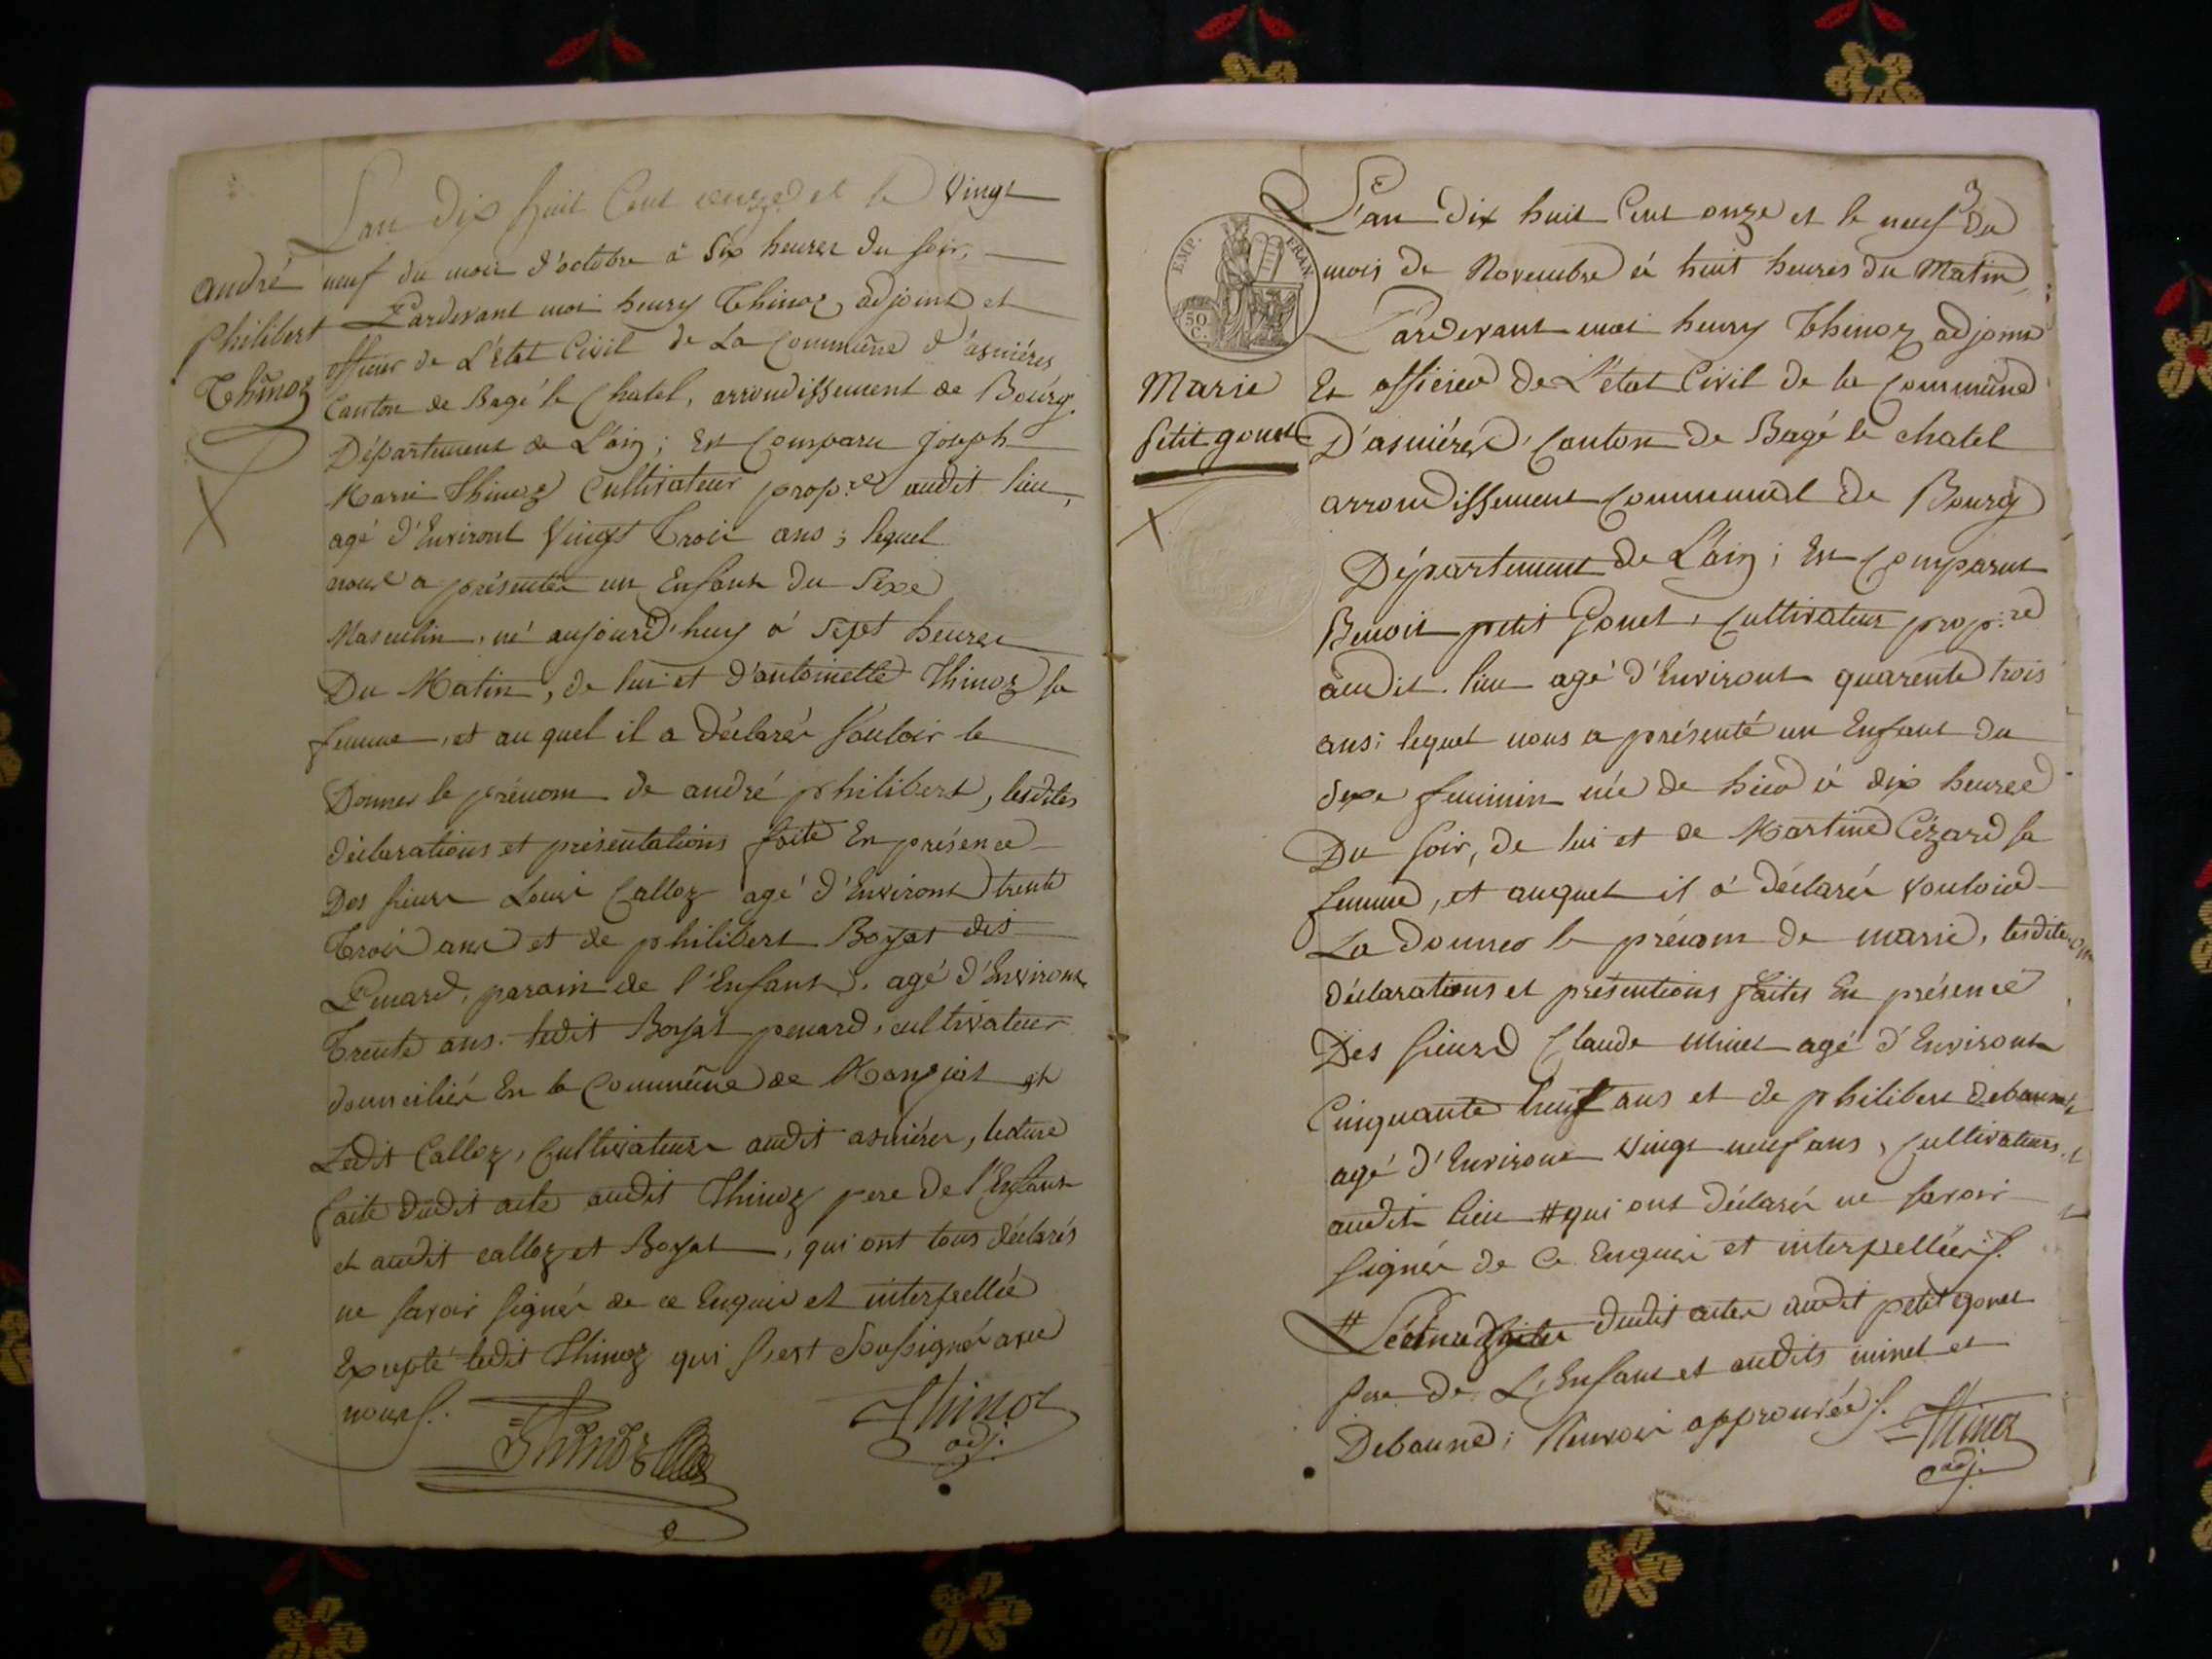 L'an dix huit Cent onze et le Vingt
neuf du mois d'octobre à Six heures du soir,
Pardevant moi henry Thinoz adjoint et
officier de L'état Civil de La Commune d'asnières
Canton de Bagé le Chatel, arrondissement de Bourg.
Département de L'ain; Est Comparu joseph
Marie Thinoz Cultivateur prop.re audit lieu,
agé d'Environt Vingt Trois ans; lequel
nous a présentér un Enfant du Sexe
Masculin, né aujourd'huy à Sept heures
Du Matin, de lui et d'antoinette Thinoz sa
femme, et au quel il a déclarér Vouloir le
Donner le prénom de andré philibert, lesdites
déclarations et présentations faite En présence
Des sieurs Louis Calloz agé d'Environt trente
Trois ans et de philibert Boyat dit
Penard, parain de l'Enfant, agé d'Environt
Trente ans. ledit Boyat penard, cultivateur
domiciliér En la Commune de Manziat et
Ledit Calloz, Cultivateur audit asnières, lecture
faite dudit acte audit Thinoz pere de l'Enfant
et audit calloz et Boyat, qui ont tous déclarés
ne savoir signér de ce Enquis et interpellée
Excepté ledit Thinoz qui s'est Soussigné avec
nous.
Thinoz
Thinoz
adj.
andré
philibert
Thinoz
3
L'an dix huit Cent onze et le neuf du
mois de Novembre à huit heures du Matin
Pardevant moi henry Thinoz adjoint
Et officier de L'état Civil de la Commune
D'asnières, Canton de Bagé le chatel
arrondissement Communal de Bourg
Département de L'ain; Est Comparut
Benoit petit Gonet, Cultivateur prop.re
audit lieu agé d'Environt quarente trois
ans; lequel nous a présenté un Enfant du
Sexe feminin née de hier à dix heures
Du soir, de lui et de Martine Cézard sa
femme, et auquel il à déclarér vouloir
La donner le prénom de marie, lesdites
déclarations et présentions faites En présence
Des sieurs Claude minet agé d'Environt
Cinquante neuf ans et de philibert Debaune
agé d'Environt vingt neuf ans, Cultivateurs
audit lieu # qui ont déclarér ne savoir
signér de Ce Enquis et interpellées.
# Lecture faite dudit acte audit petit gonet
pere de L'Enfant et audits minet et
Debaune; Renvoi approuvée.
Thinoz
adj.
EMP. FRAN.
50
C.
Marie
petit gonet